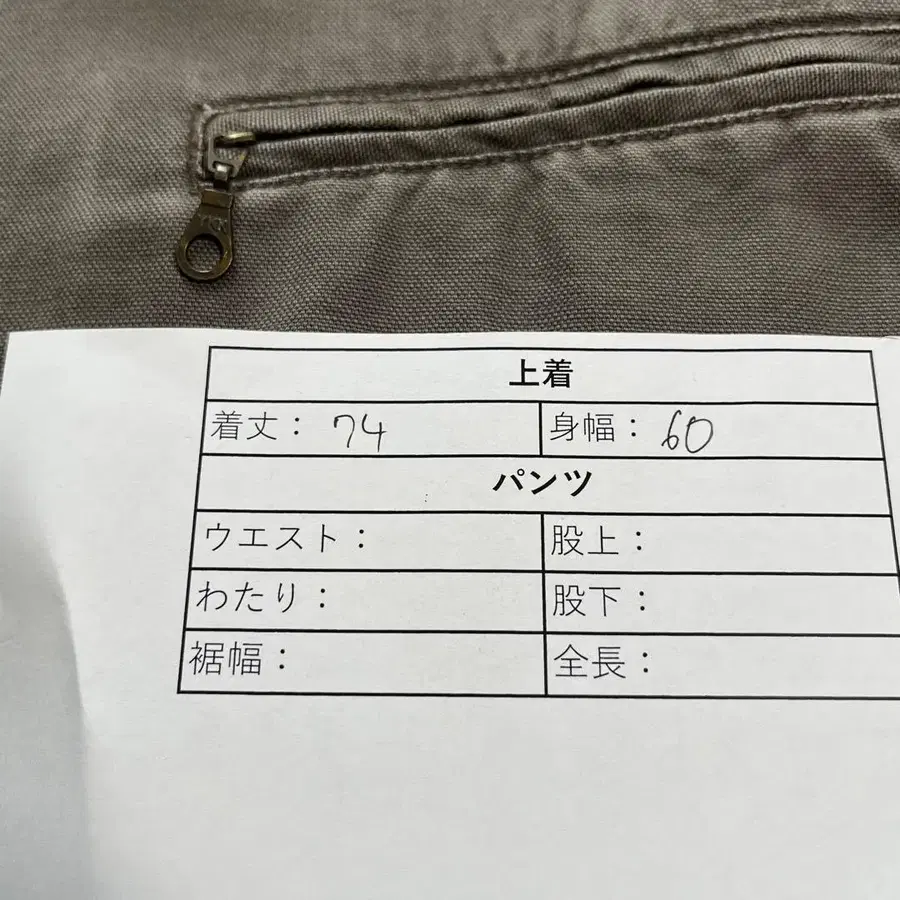 上着
着丈： 74 身幅： 60
パンツ
ウエスト： 股上：
わたり： 股下：
裾幅： 全長：